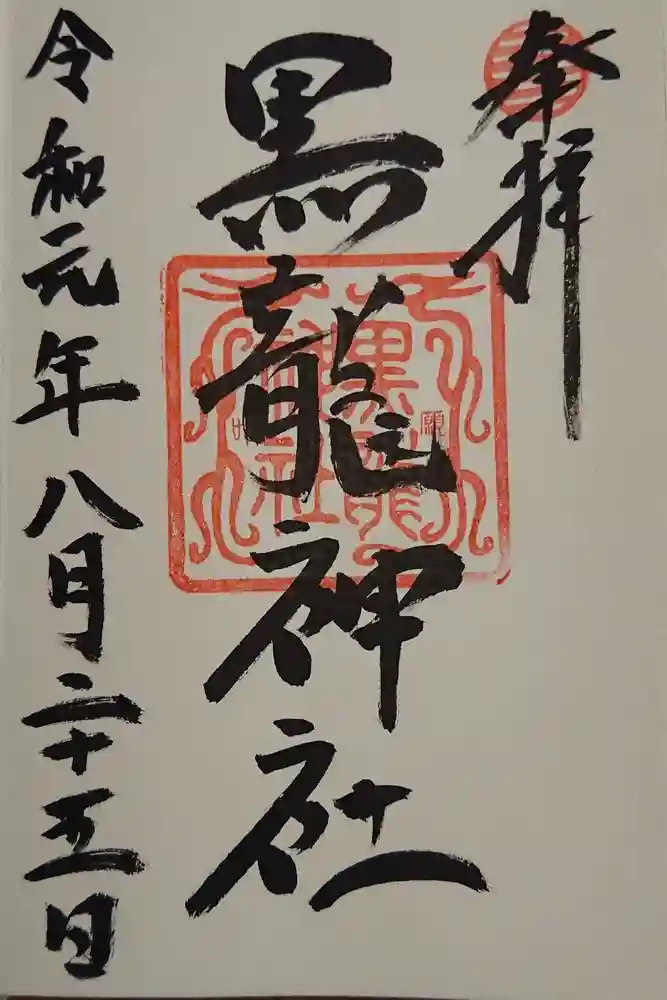 奉拝
黒龍神社
令和元年八月二十五日
黒龍
神社
願
叶